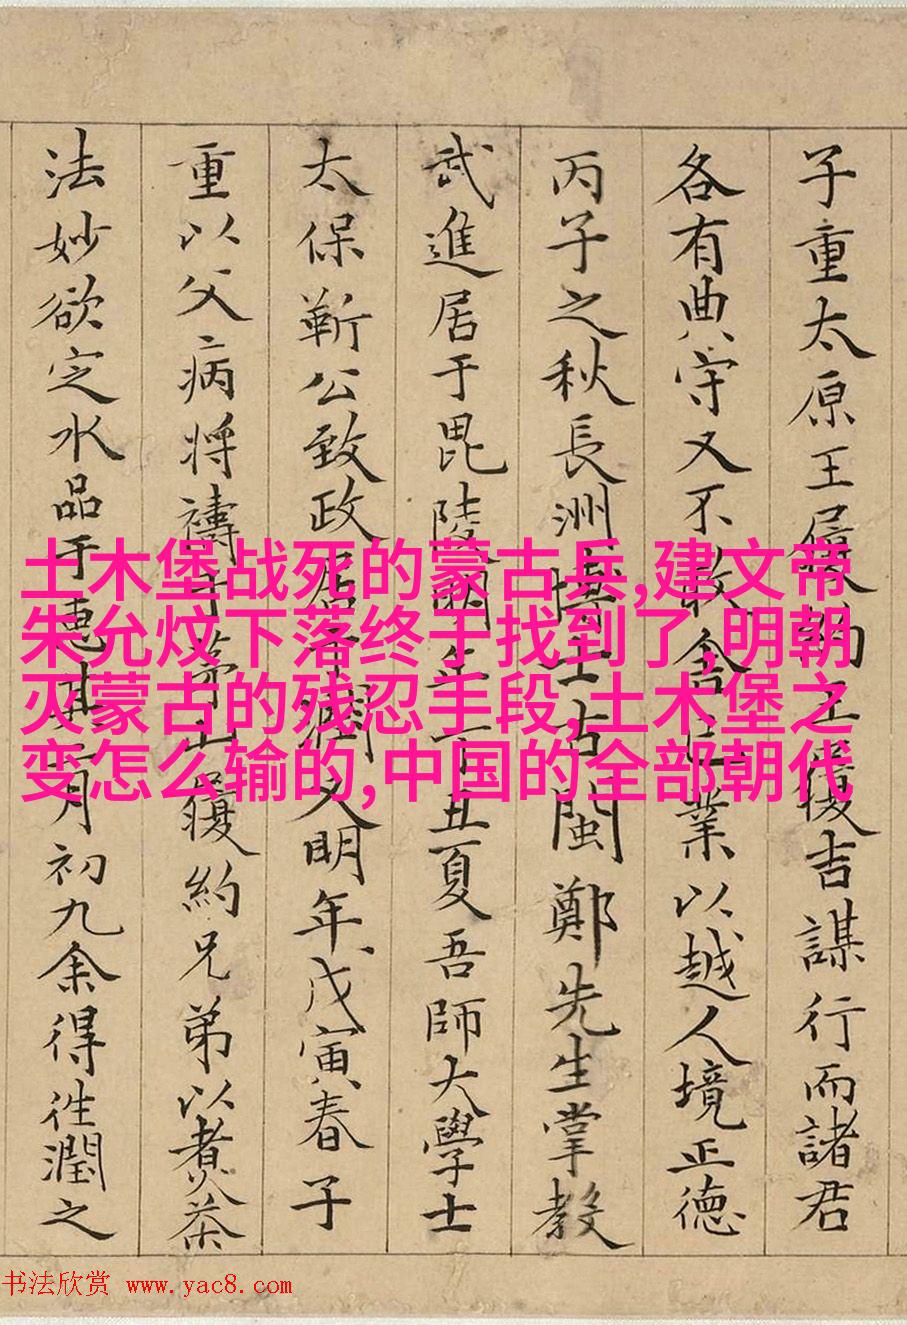 子重太原王履約王履吉謀行而諸君
各有典守又不敢舍己業以越人境正德
丙子之秋長洲博士古閩鄭先生掌教
武進居于毘陵明年丁丑夏吾師大學士
太保靳公致政居潤又明年戊寅春子
重以父病將禱于茅山履約兄弟以煮茶
法妙欲定水品于惠其二月初九余得往潤之
土木堡战死的蒙古兵,建文帝
朱允炆下落终于找到了,明朝
灭蒙古的残忍手段,土木堡之
变怎么输的,中国的全部朝代
书法欣赏 www.yac8.com